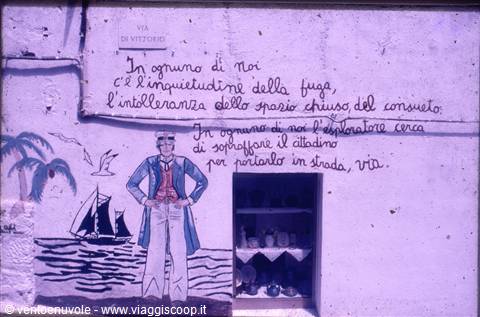 VIA
DI VITTORIO
In ognuno di noi
c'è l'inquietudine della fuga,
l'intolleranza dello spazio chiuso, del consueto.
In ognuno di noi l'esploratore cerca
di sopraffare il cittadino
per portarlo in strada, via.
© ventoenuvole - www.viaggiscoop.it